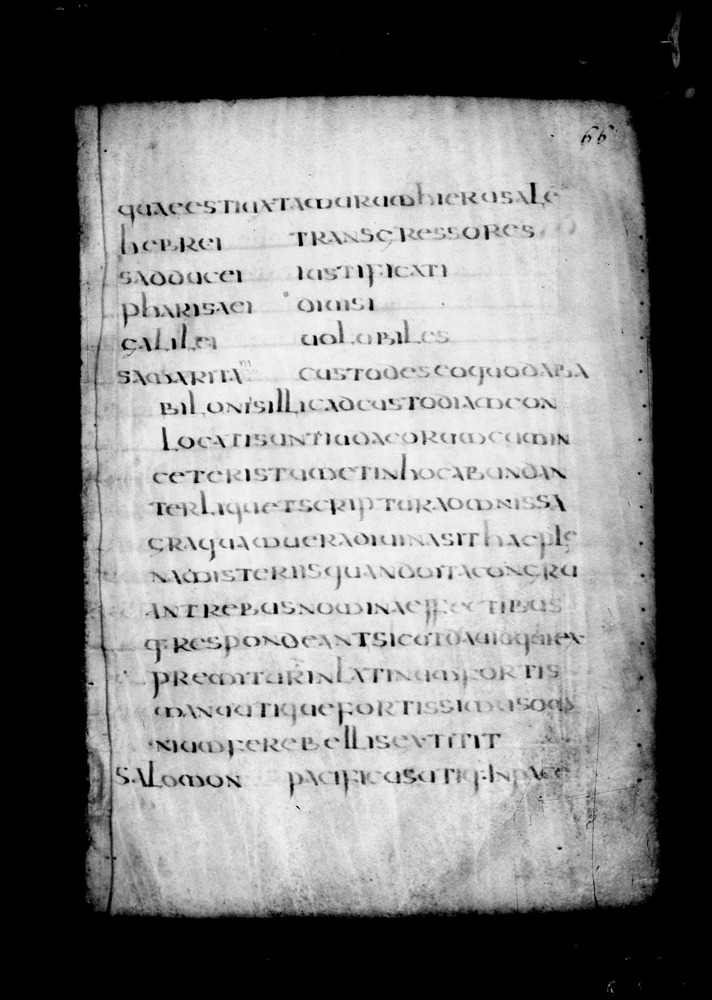 66
quaeestiuxtamurumhierusale
hebrei transgressores
sadducei iustificati
pharisaei diuisi
galilei uolubiles
samaritam custodeseoquodaba
bilonisillicadcustodiamcon
locatisuntiudaeorumcumin
ceteristumetinhocabundan
terliquetscripturaomnissa
graquamueradiuinasithaecple
namisteriisquandoitacongru
antrebusnominaeffectibus
q·respondeantsicutdauidquiex
premiturinlatinumfortis
manuutiquefortissimusom
niumferebellisextitit
salomon pacificusutiq·inpace